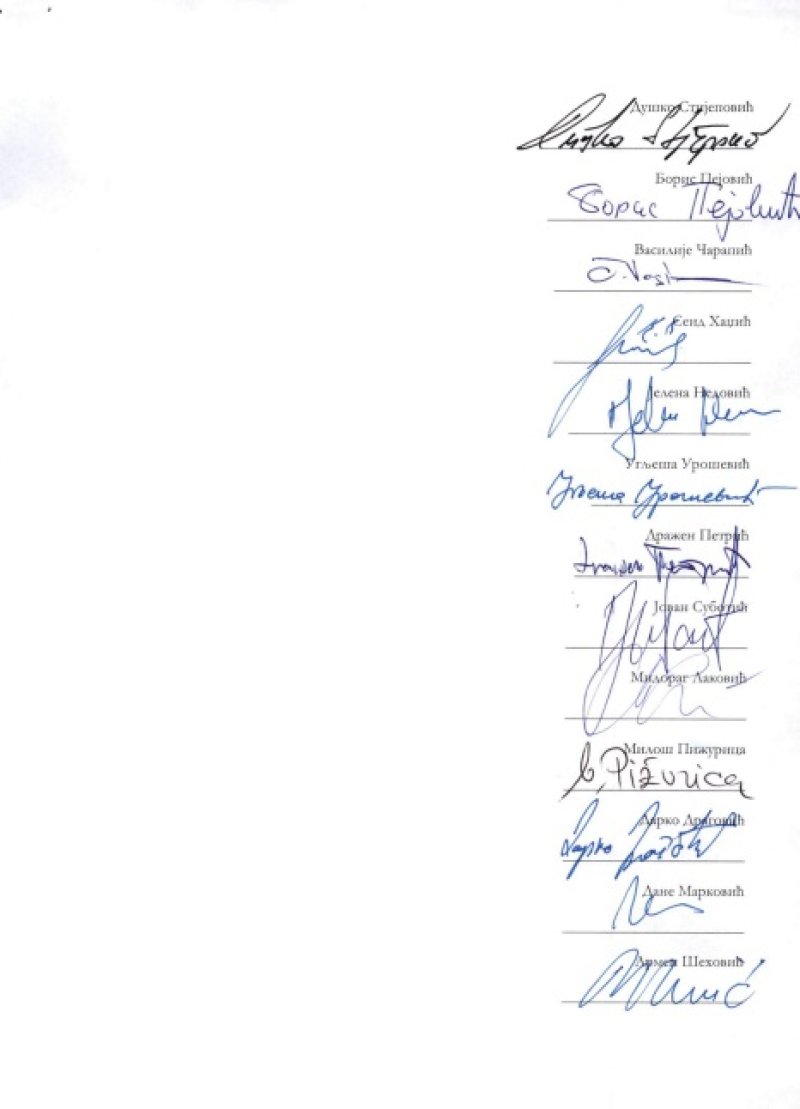 Душко Стијеповић
Борис Пејовић
Борис Пејовић
Василије Чарапић
Сеид Хаџић
Јелена Недовић
Угљеша Урошевић
Угљеша Урошевић
Дражен Петрић
Јован Суботић
Милораг Лаковић
Милош Пижурица
Pižurica
Дарко Драговић
Дарко
Дане Марковић
Армен Шеховић